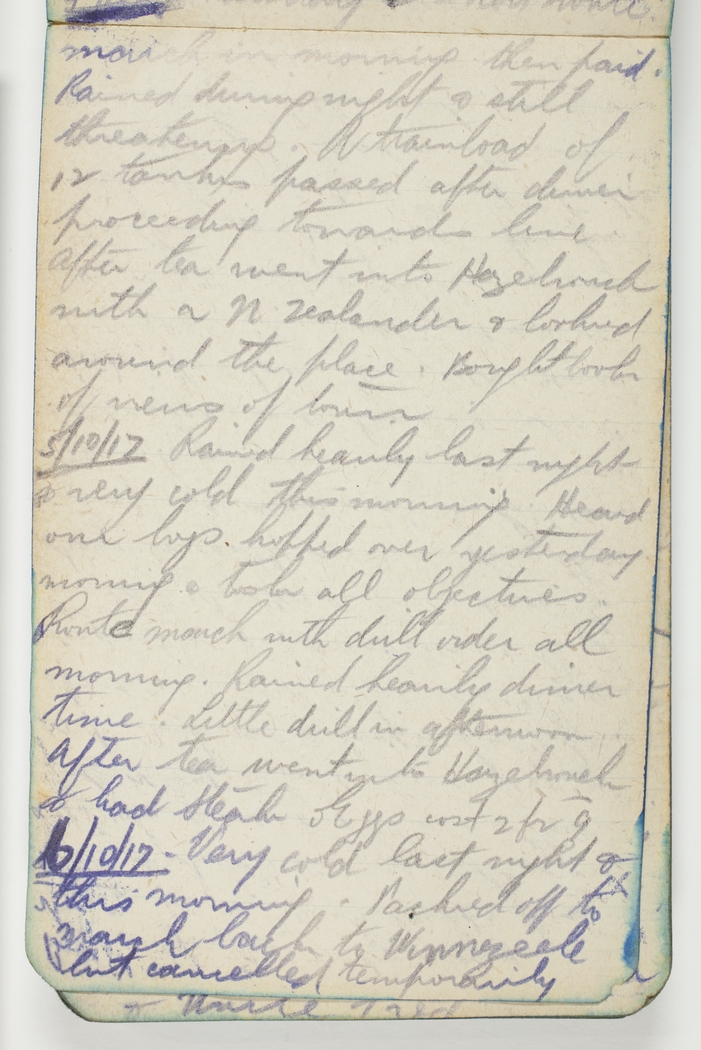 march in morning then paid.
Rained during night & still
threatening. A trainload of
12 tanks passed after dinner
proceeding towards line
After tea went into Hazebrouck
with a N Zealander & looked
around the place. Bought book
of views of town
5/10/17 Rained heavily last night
& very cold this morning. Heard
our boys hopped over yesterday
morning & took all objectives.
Route march with drill order all
morning. Rained heavily dinner
time. Little drill in afternoon
After tea went into Hazebrouck
& had Steak & Eggs cost 2 fr
6/10/17 - Very cold last night &
this morning. Packed off to
march back to Winnezeele
but cancelled temporarily